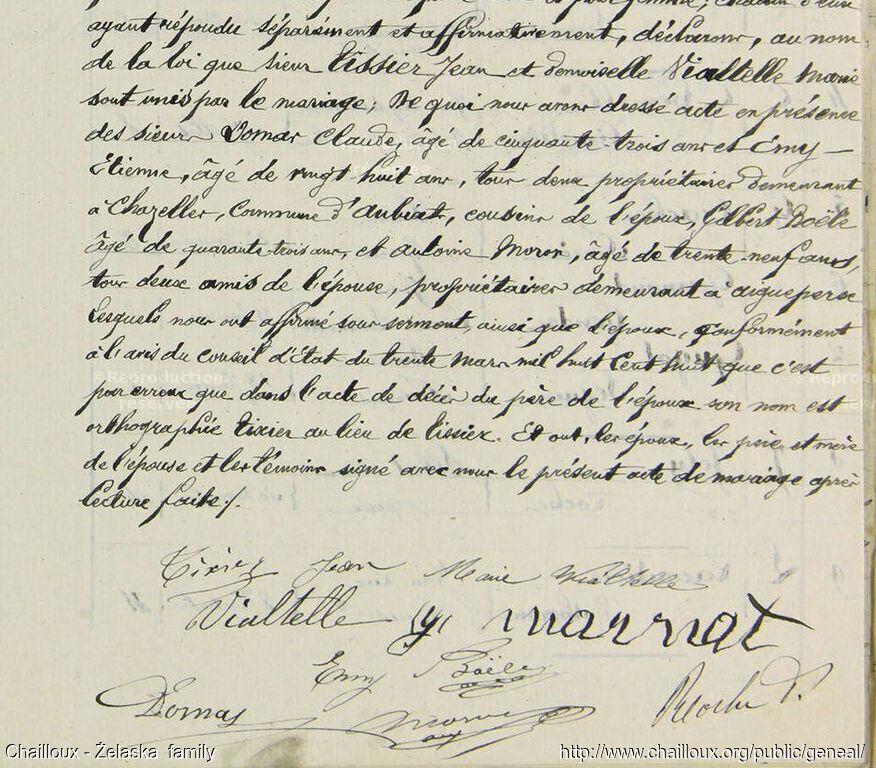 ayant répondu séparément et affirmativement, déclarons, au nom
de la loi que sieur Tissier Jean et demoiselle Vialtelle Marie
sont unis par le mariage; De quoi nous avons dressé acte en présence
des sieurs Domas Claude, âgé de cinquante-trois ans et Emy
Etienne, âgé de vingt-huit ans, tous deux propriétaires demeurant
à Chazelles, commune d'Aubiat, cousins de l'époux, Gilbert Boële
âgé de quarante-trois ans, et Antoine Moron, âgé de trente-neuf ans,
tous deux amis de l'épouse, propriétaires demeurant à Aigueperse
Lesquels nous ont affirmé sous serment, ainsi que l'époux, conformément
à l'avis du conseil d'Etat du trente mars mil huit cent huit que c'est
par erreur que dans l'acte de décès du père de l'époux son nom est
orthographié Tixier au lieu de Tissier. Et ont, les époux, les père et mère
de l'épouse et les témoins signé avec nous le présent acte de mariage après
lecture faite./.
Tixier Jean Marie Vialtelle
Vialtelle marnat
Emy Boële
Domas Moron
Chailloux - Żelaska family http://www.chailloux.org/public/geneal/